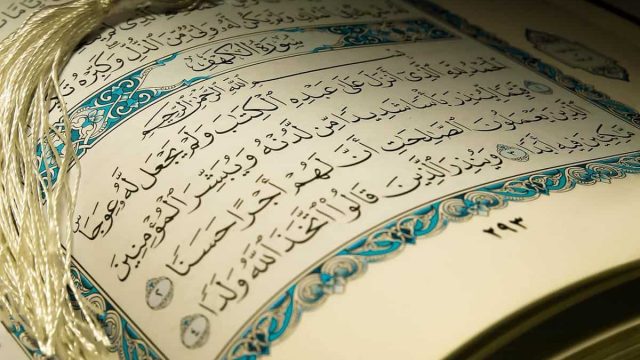 وَلِىٌّ مِّنَ ٱلذُّلِّ وَكَبِّرْهُ
سُورَةُ الكَهْفِ
بِسْمِ ٱللَّهِ ٱلرَّحْمَٰنِ ٱلرَّحِيمِ
ٱلْحَمْدُ لِلَّهِ ٱلَّذِىٓ أَنزَلَ عَلَىٰ عَبْدِهِ ٱلْكِتَٰبَ وَلَمْ يَجْعَل لَّهُۥ عِوَجَا
قَيِّمًا لِّيُنذِرَ بَأْسًا شَدِيدًا مِّن لَّدُنْهُ وَيُبَشِّرَ ٱلْمُؤْمِنِينَ
ٱلَّذِينَ يَعْمَلُونَ ٱلصَّٰلِحَٰتِ أَنَّ لَهُمْ أَجْرًا حَسَنًا ٢
مَّٰكِثِينَ فِيهِ أَبَدًا ٣ وَيُنذِرَ ٱلَّذِينَ قَالُوا۟ ٱتَّخَذَ ٱللَّهُ وَلَدًا ٤
٢٩٣